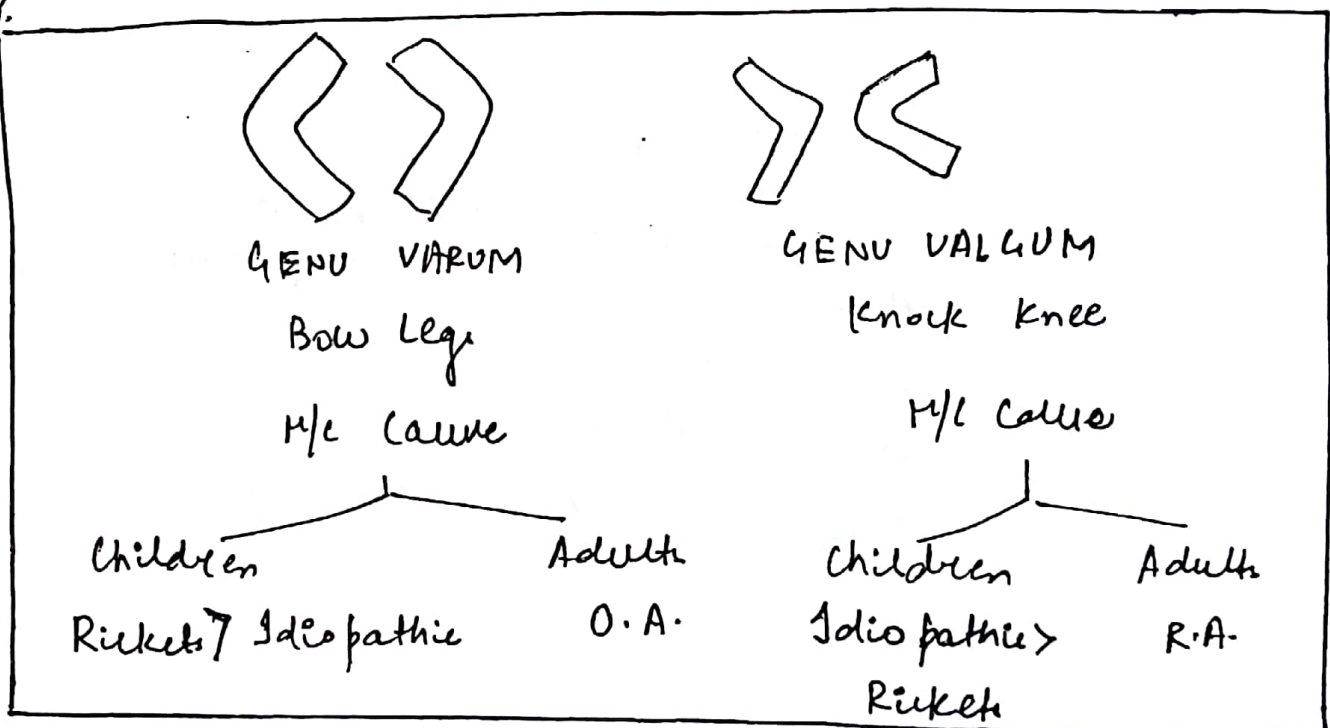 GENU VARUM
Bow Legs
M/c Cause
Children
Rickets > Idiopathic
Adults
O.A.
GENU VALGUM
Knock Knee
M/c Cause
Children
Idiopathic >
Rickets
Adults
R.A.